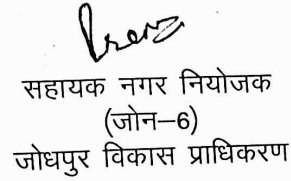 सहायक नगर नियोजक
(जोन–6)
जोधपुर विकास प्राधिकरण